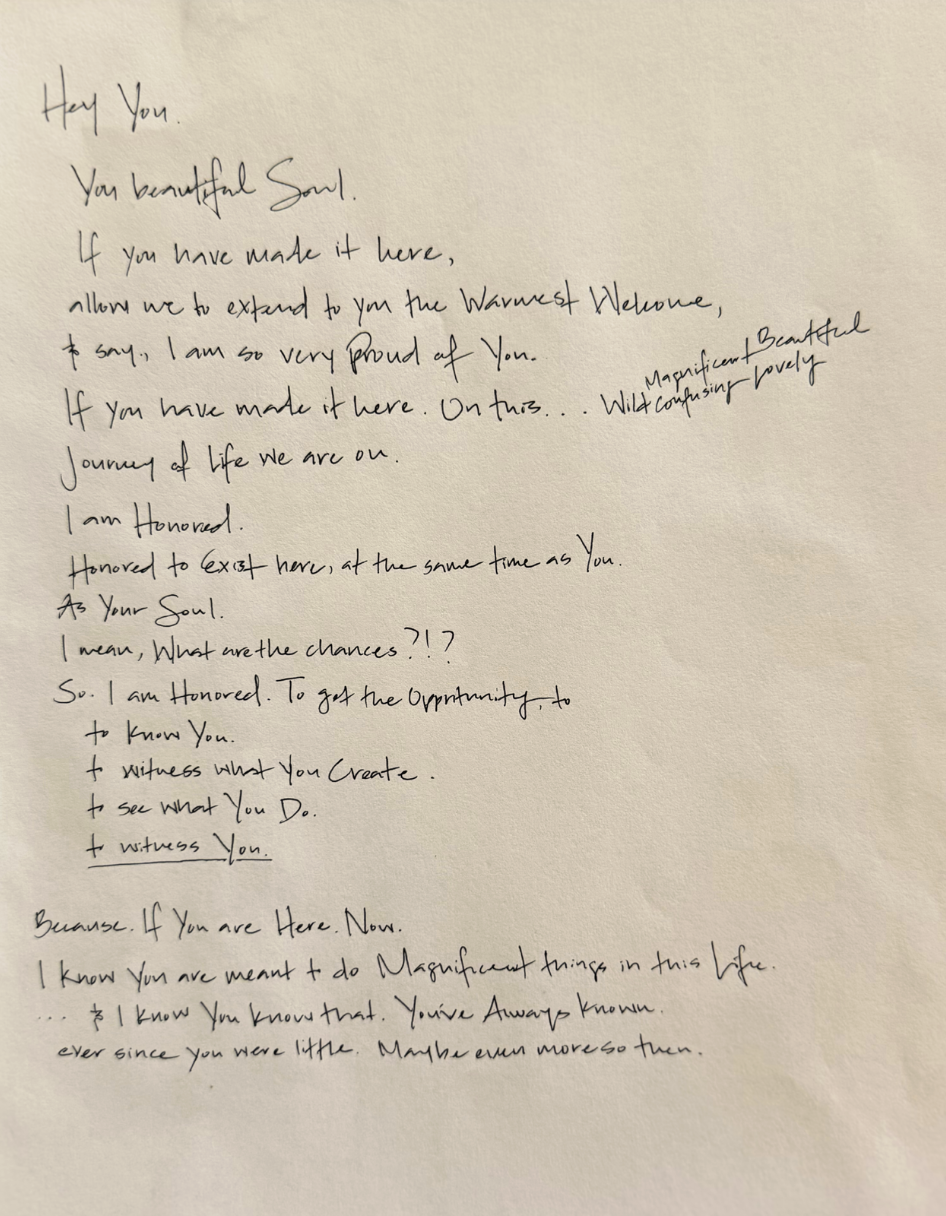 Hey You.
You beautiful Soul.
If you have made it here,
allow me to extend to you the Warmest Welcome,
& say., I am so very Proud of You.
If you have made it here. On this... Wild Magnificent Beautiful
confusing Lovely
Journey of Life we are on.
I am Honored.
Honored to Exist here, at the same time as You.
As Your Soul.
I mean, What are the chances?!?
So. I am Honored. To get the Opportunity, to
to know You.
to witness what You Create.
to see what You Do.
to witness You.
Because. If You are Here. Now.
I know You are meant to do Magnificent things in this Life.
... & I know You know that. You've Always known.
ever since you were little. Maybe even more so then.